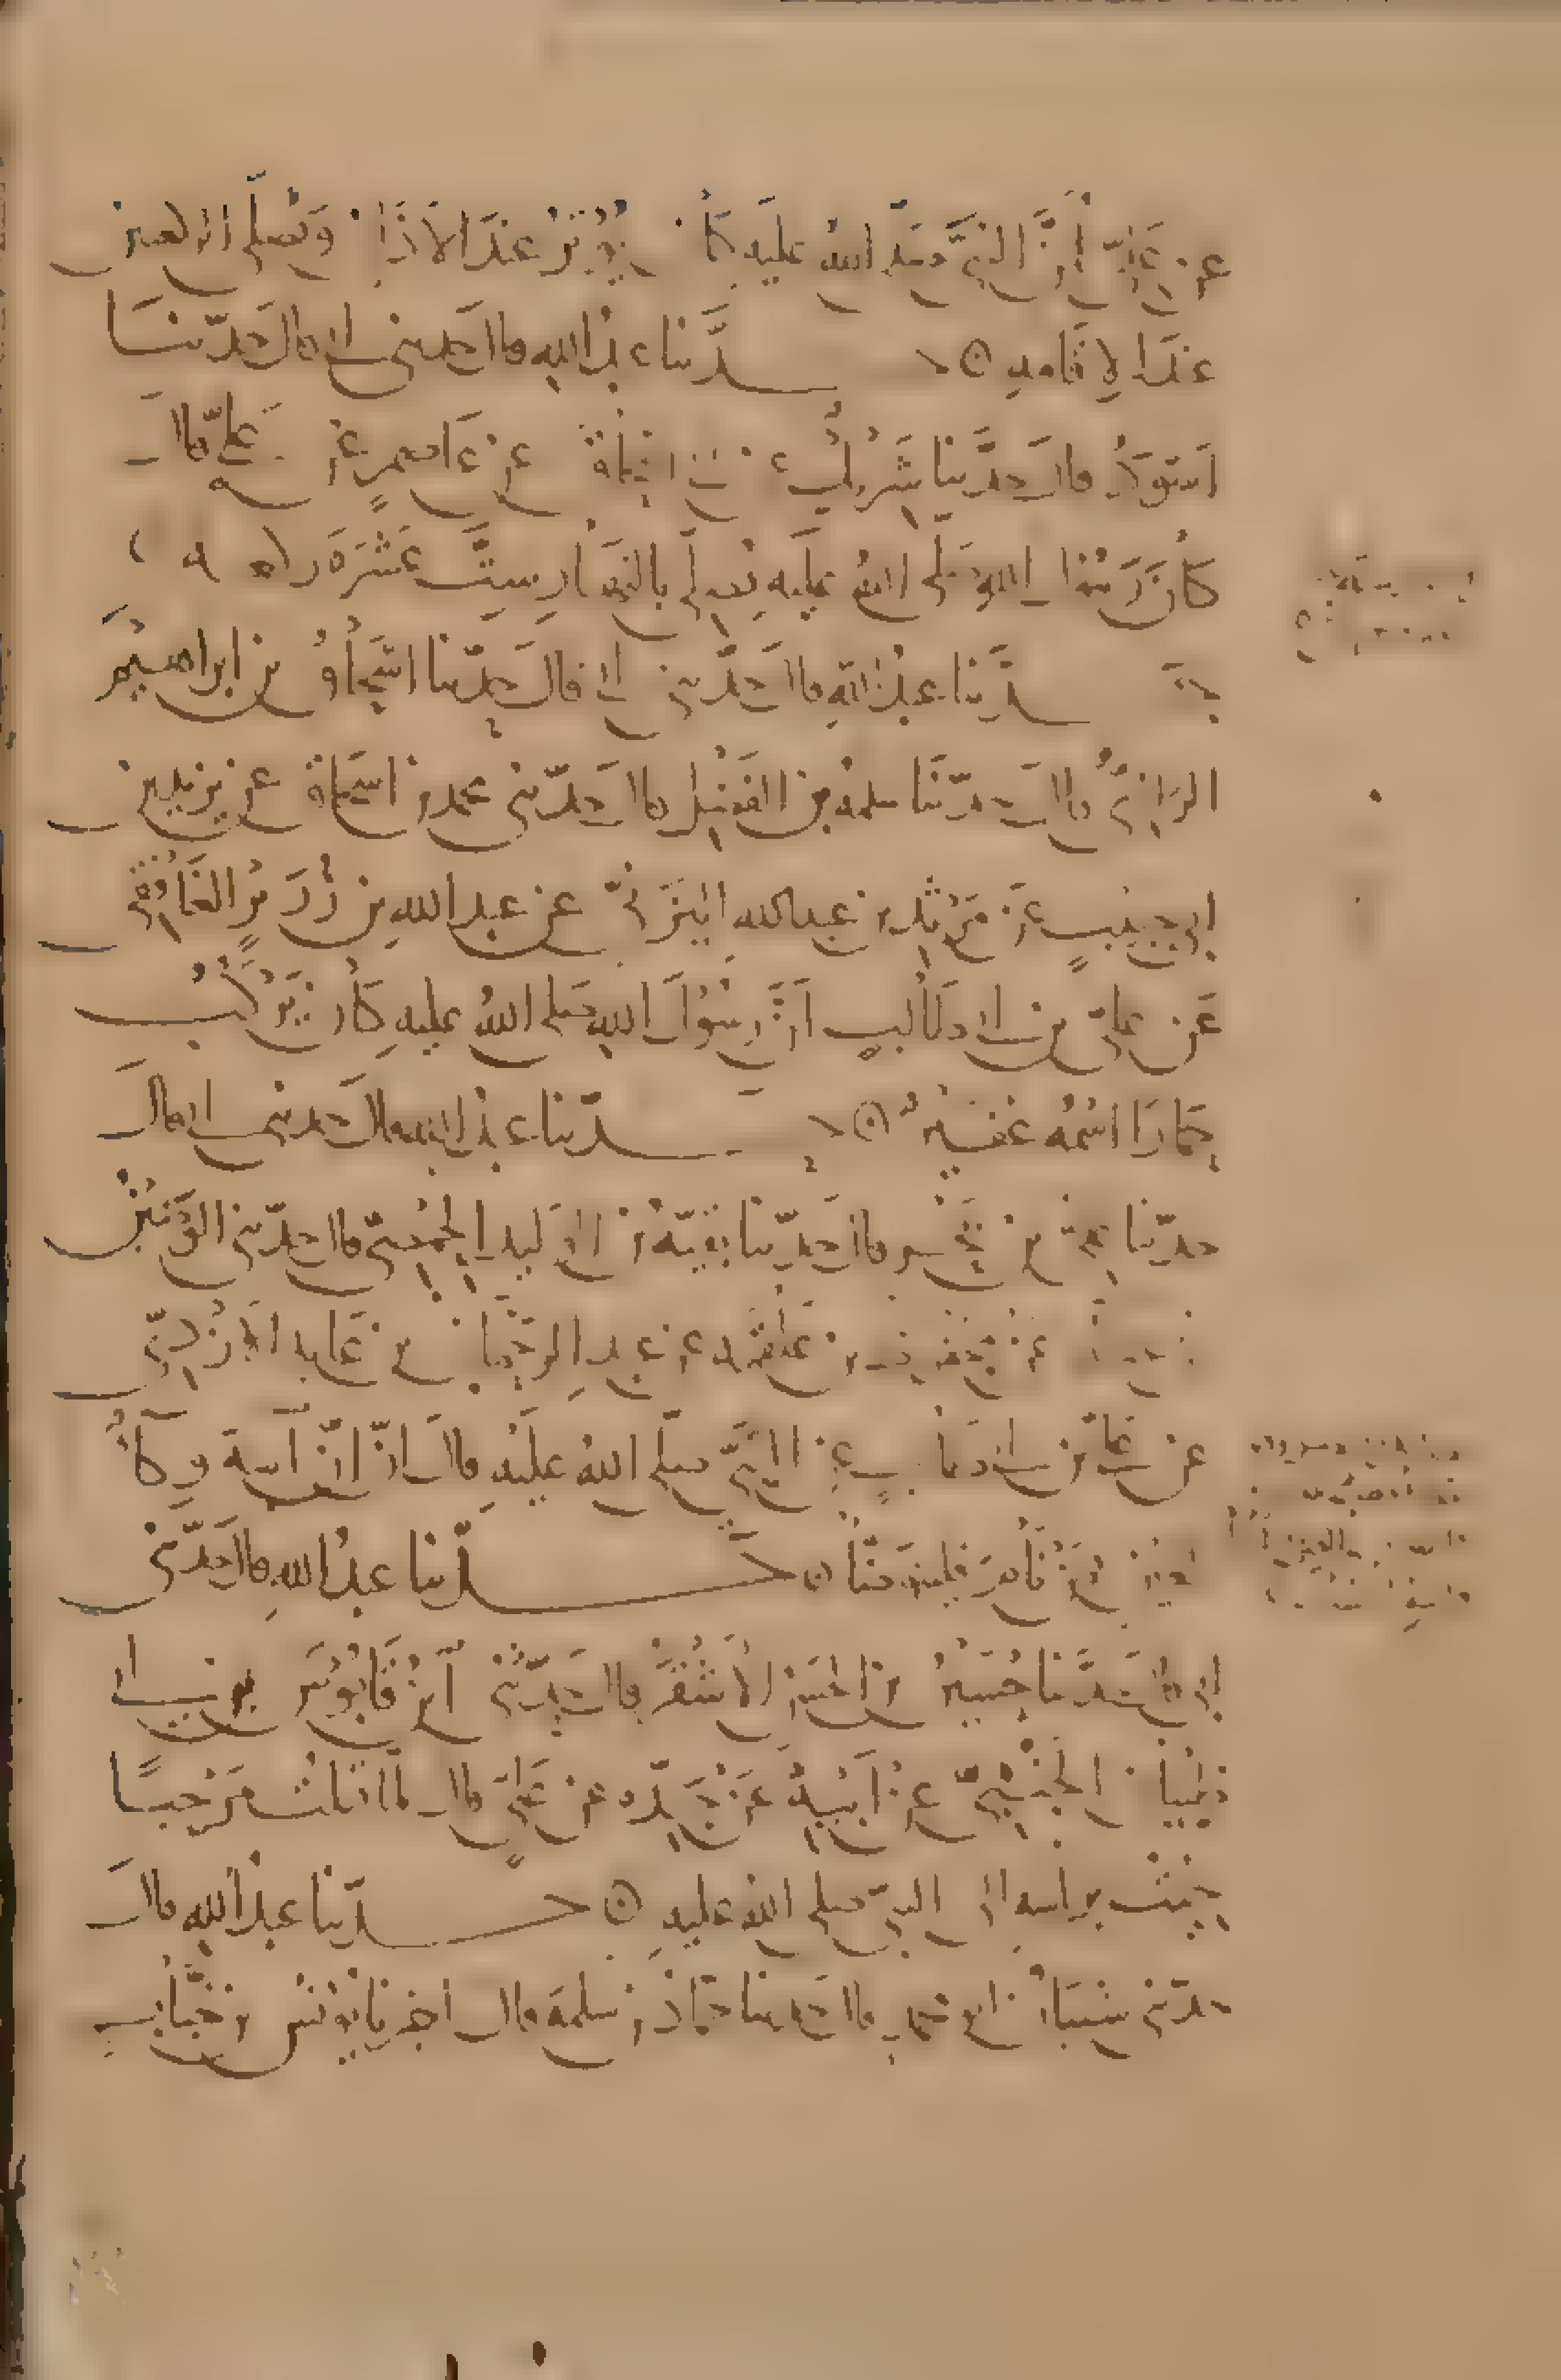 عن عَليّ أنَّ النبيَّ صَلّى اللهُ عليه كَانَ يُوْتِرُ عندَ الاَذَانِ وَيُصلّي الركعتين
عندَ الإقَامةِ
حدَّثنا عبدُ اللهِ قالَ حدثني أبي قال حَدّثنَا
اَسْوَدُ قالَ حدَّثنا شَرِيْكٌ عن أبي إسحاق عن عَاصمٍ عن عَليّ قالَ
كَانَ رَسُولُ اللهِ صَلّى اللهُ عليَه يُصلّي بالنهَارِ سِتَّ عَشْرَةَ رَكعةً
حدَّثنا عبدُ اللهِ قالَ حدّثني أبي قالَ حدّثنا اسْحَاقُ بن ابراهِيْمَ
الرازيُّ قالَ حدّثَنا سلمةُ بن الفَضْلِ قالَ حَدّثني محمد بن اسحَاق عن يزيد بن
ابي حبيبٍ عَن مَرْثَدِ بن عبد الله اليَزَنيّ عن عبد اللهِ بن زُرَيْرٍ الغَافِقيّ
عَن عليّ بن أبي طَالبٍ اَنَّ رسُوْلَ اللهِ صَلى اللهُ عليهِ كَانَ يَرْكَبُ
حِمَارًا اسْمُه عُفَيْرٌ
حدّثنا عبدُ اللهِ قالَ حدثني أبي قالَ
حدّثنا عليّ بن بَحْرٍ قالَ حدّثنا بَقيّةُ بن الوَليد الحِمْصيّ قالَ حدّثني الوَضِيْنُ
بن عطاء عن محفوظ بن عَلْقَمَة عن عبدِ الرحمَانِ بن عَايذ الاَزْديّ
عن عَليّ بن أبي طَالبٍ عنِ النَّبيِّ صلّى اللهُ عليْهِ قالَ انّ السَّهَ وِكَاءُ
العَيْنِ فمَنْ نَامَ فليتَوَضَّأْ
حدّثنا عبدُ اللهِ قالَ حَدّثني
ابي قالَ حَدَّثنا حُسَيْنُ بن الحَسَنِ الاَشْقَرُ قالَ حَدّثَني اَبنُ قَابُوْسَ بن أبي
ظَبْيَانَ الجَنْبِيّ عن أَبيْهِ عَن جَدّه عن عَليّ قالَ لمَّا قتلتُ مَرْحبًا
جِئْتُ براسِه الى النبيّ صلى اللهُ عليهِ
حدّثنا عبدُ اللهِ قالَ
حدّثني شيبَانُ ابو محمدٍ قالَ حَدثنا حَمّادُ بن سَلَمةَ قالَ اخبرنا يُوْنسُ بن خَبَّابٍ